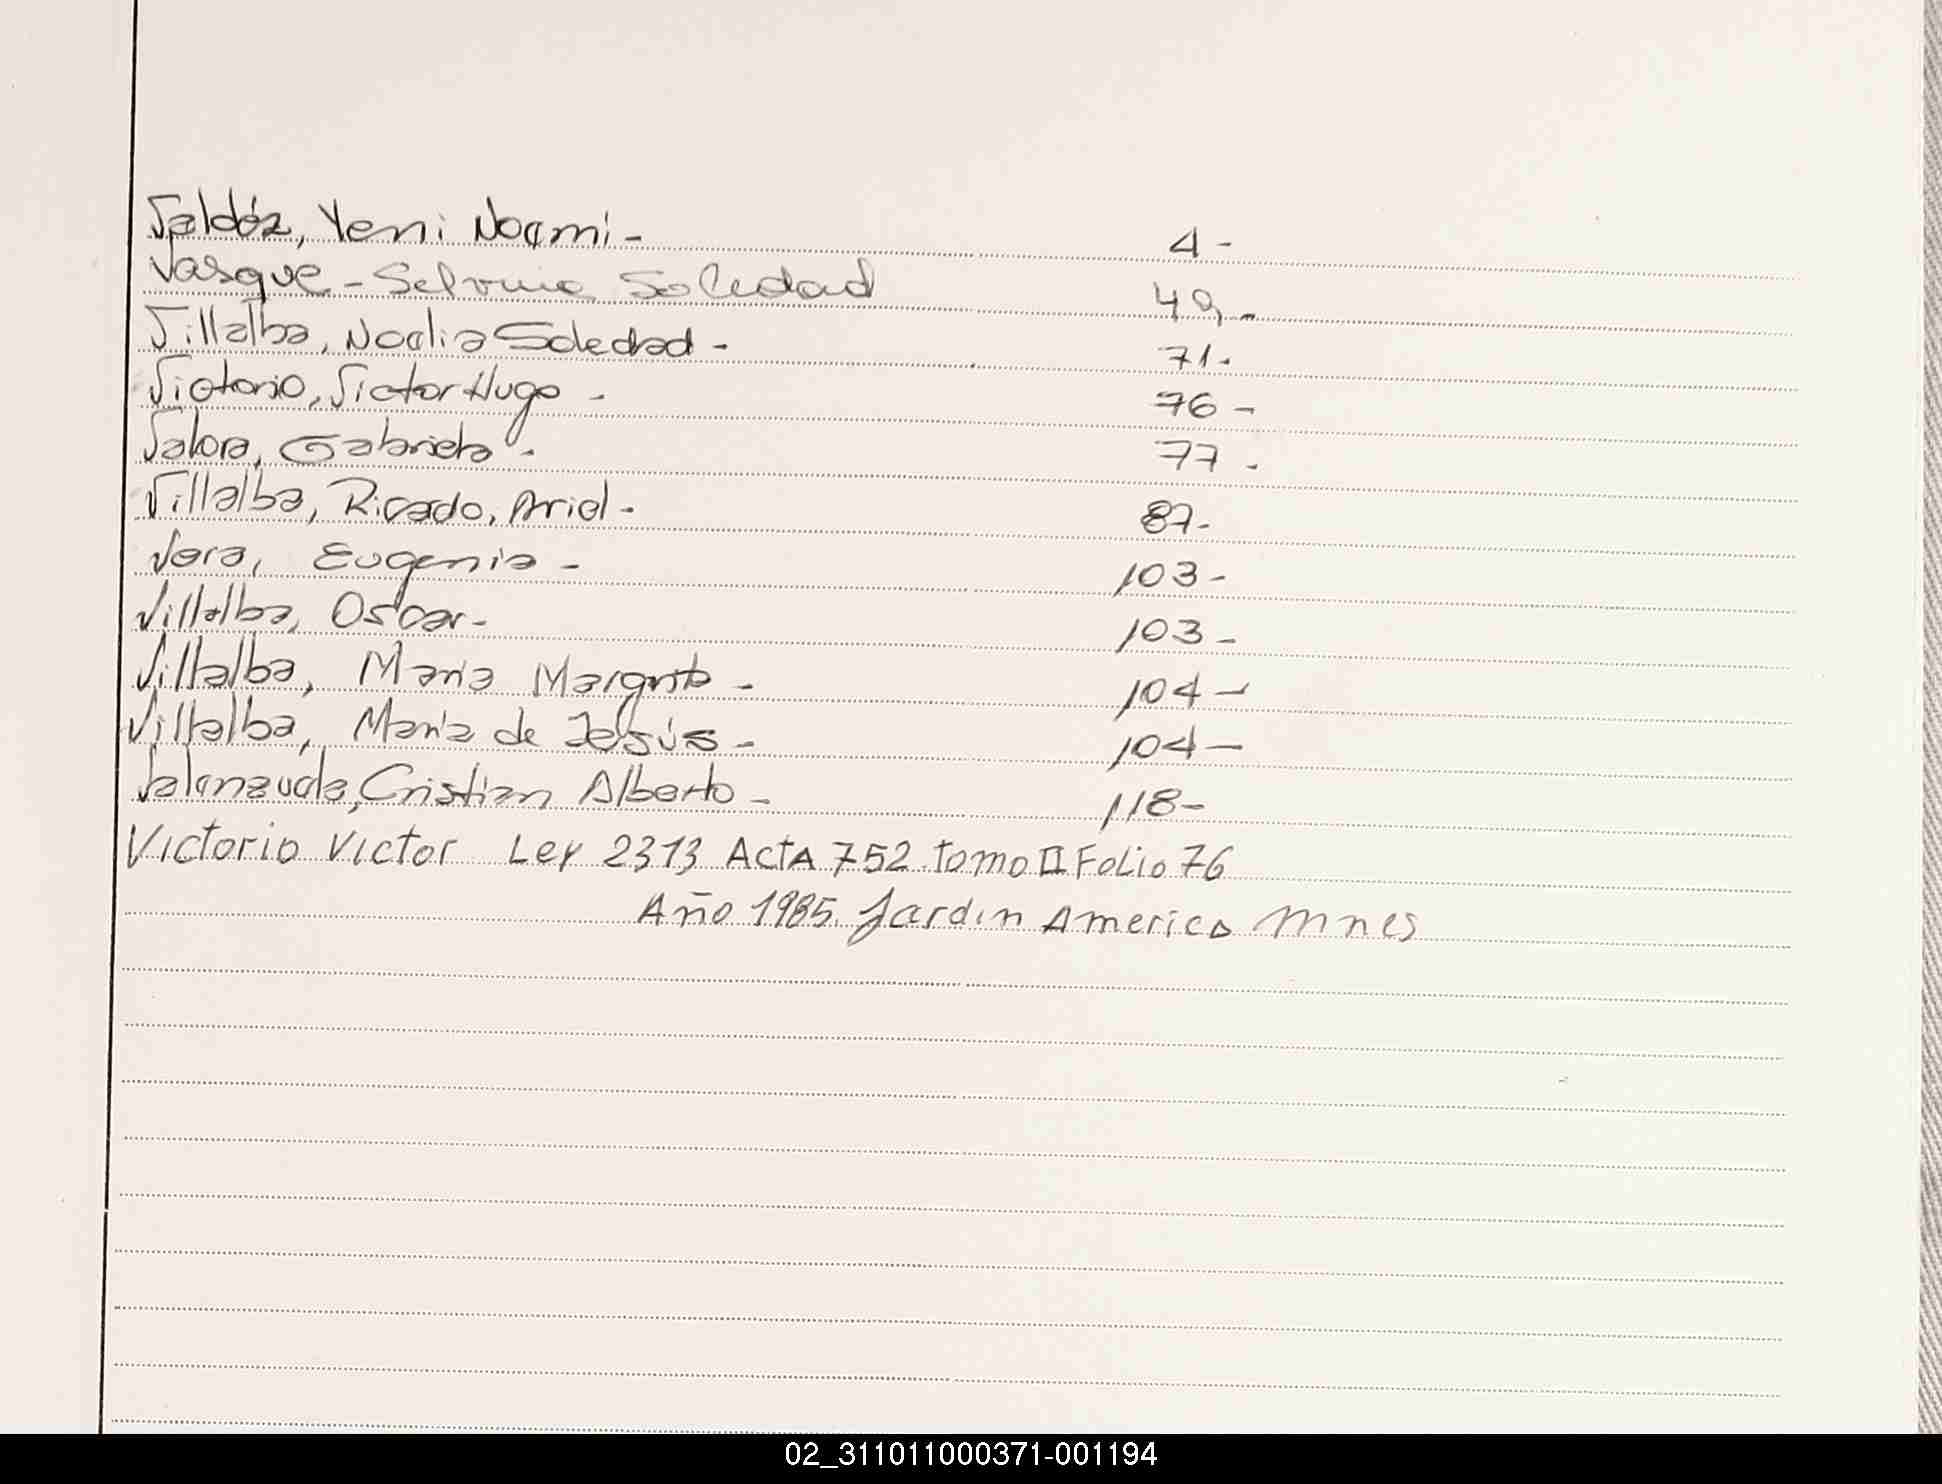 Valdéz, Yeni Noemi - 4 -
Vasque - Selvina Soledad 49 -
Villalba, Noelia Soledad - 71 -
Victorio, Victor Hugo - 76 -
Gabriela - 77 -
Villalba, Ricado, Ariel - 87 -
Vera, Eugenia - 103 -
Villalba, Oscar - 103 -
Villalba, Maria Margrita - 104 -
Villalba, María de Jesús - 104 -
Valenzuela, Cristian Alberto - 118 -
Victorio Victor Ley 2313 Acta 752 tomo II Folio 76
Año 1985. Jardin America Mnes
02_311011000371-001194